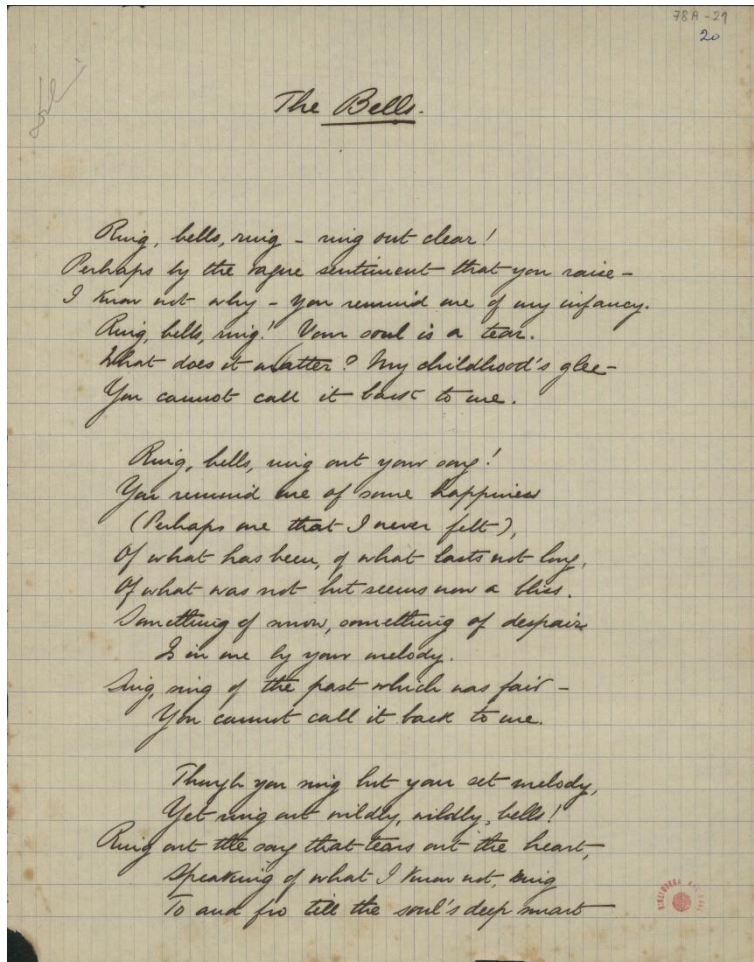 78A-29
20
The Bells.
Ring, bells, ring - ring out clear!
Perhaps by the vague sentiment that you raise -
I know not why - you remind me of my infancy.
Ring, bells, ring! Your soul is a tear.
What does it matter? My childhood's glee -
You cannot call it back to me.
Ring, bells, ring out your song!
You remind me of some happiness
(Perhaps one that I never felt),
Of what has been, of what lasts not long,
Of what was not but seems now a bliss.
Something of snow, something of despair
Is in me by your melody.
Sing, sing of the past which was fair -
You cannot call it back to me.
Though you ring but your set melody,
Yet ring out wildly, wildly, bells!
Ring out the song that tears out the heart,
Speaking of what I know not, ring
To and fro till the soul's deep smart